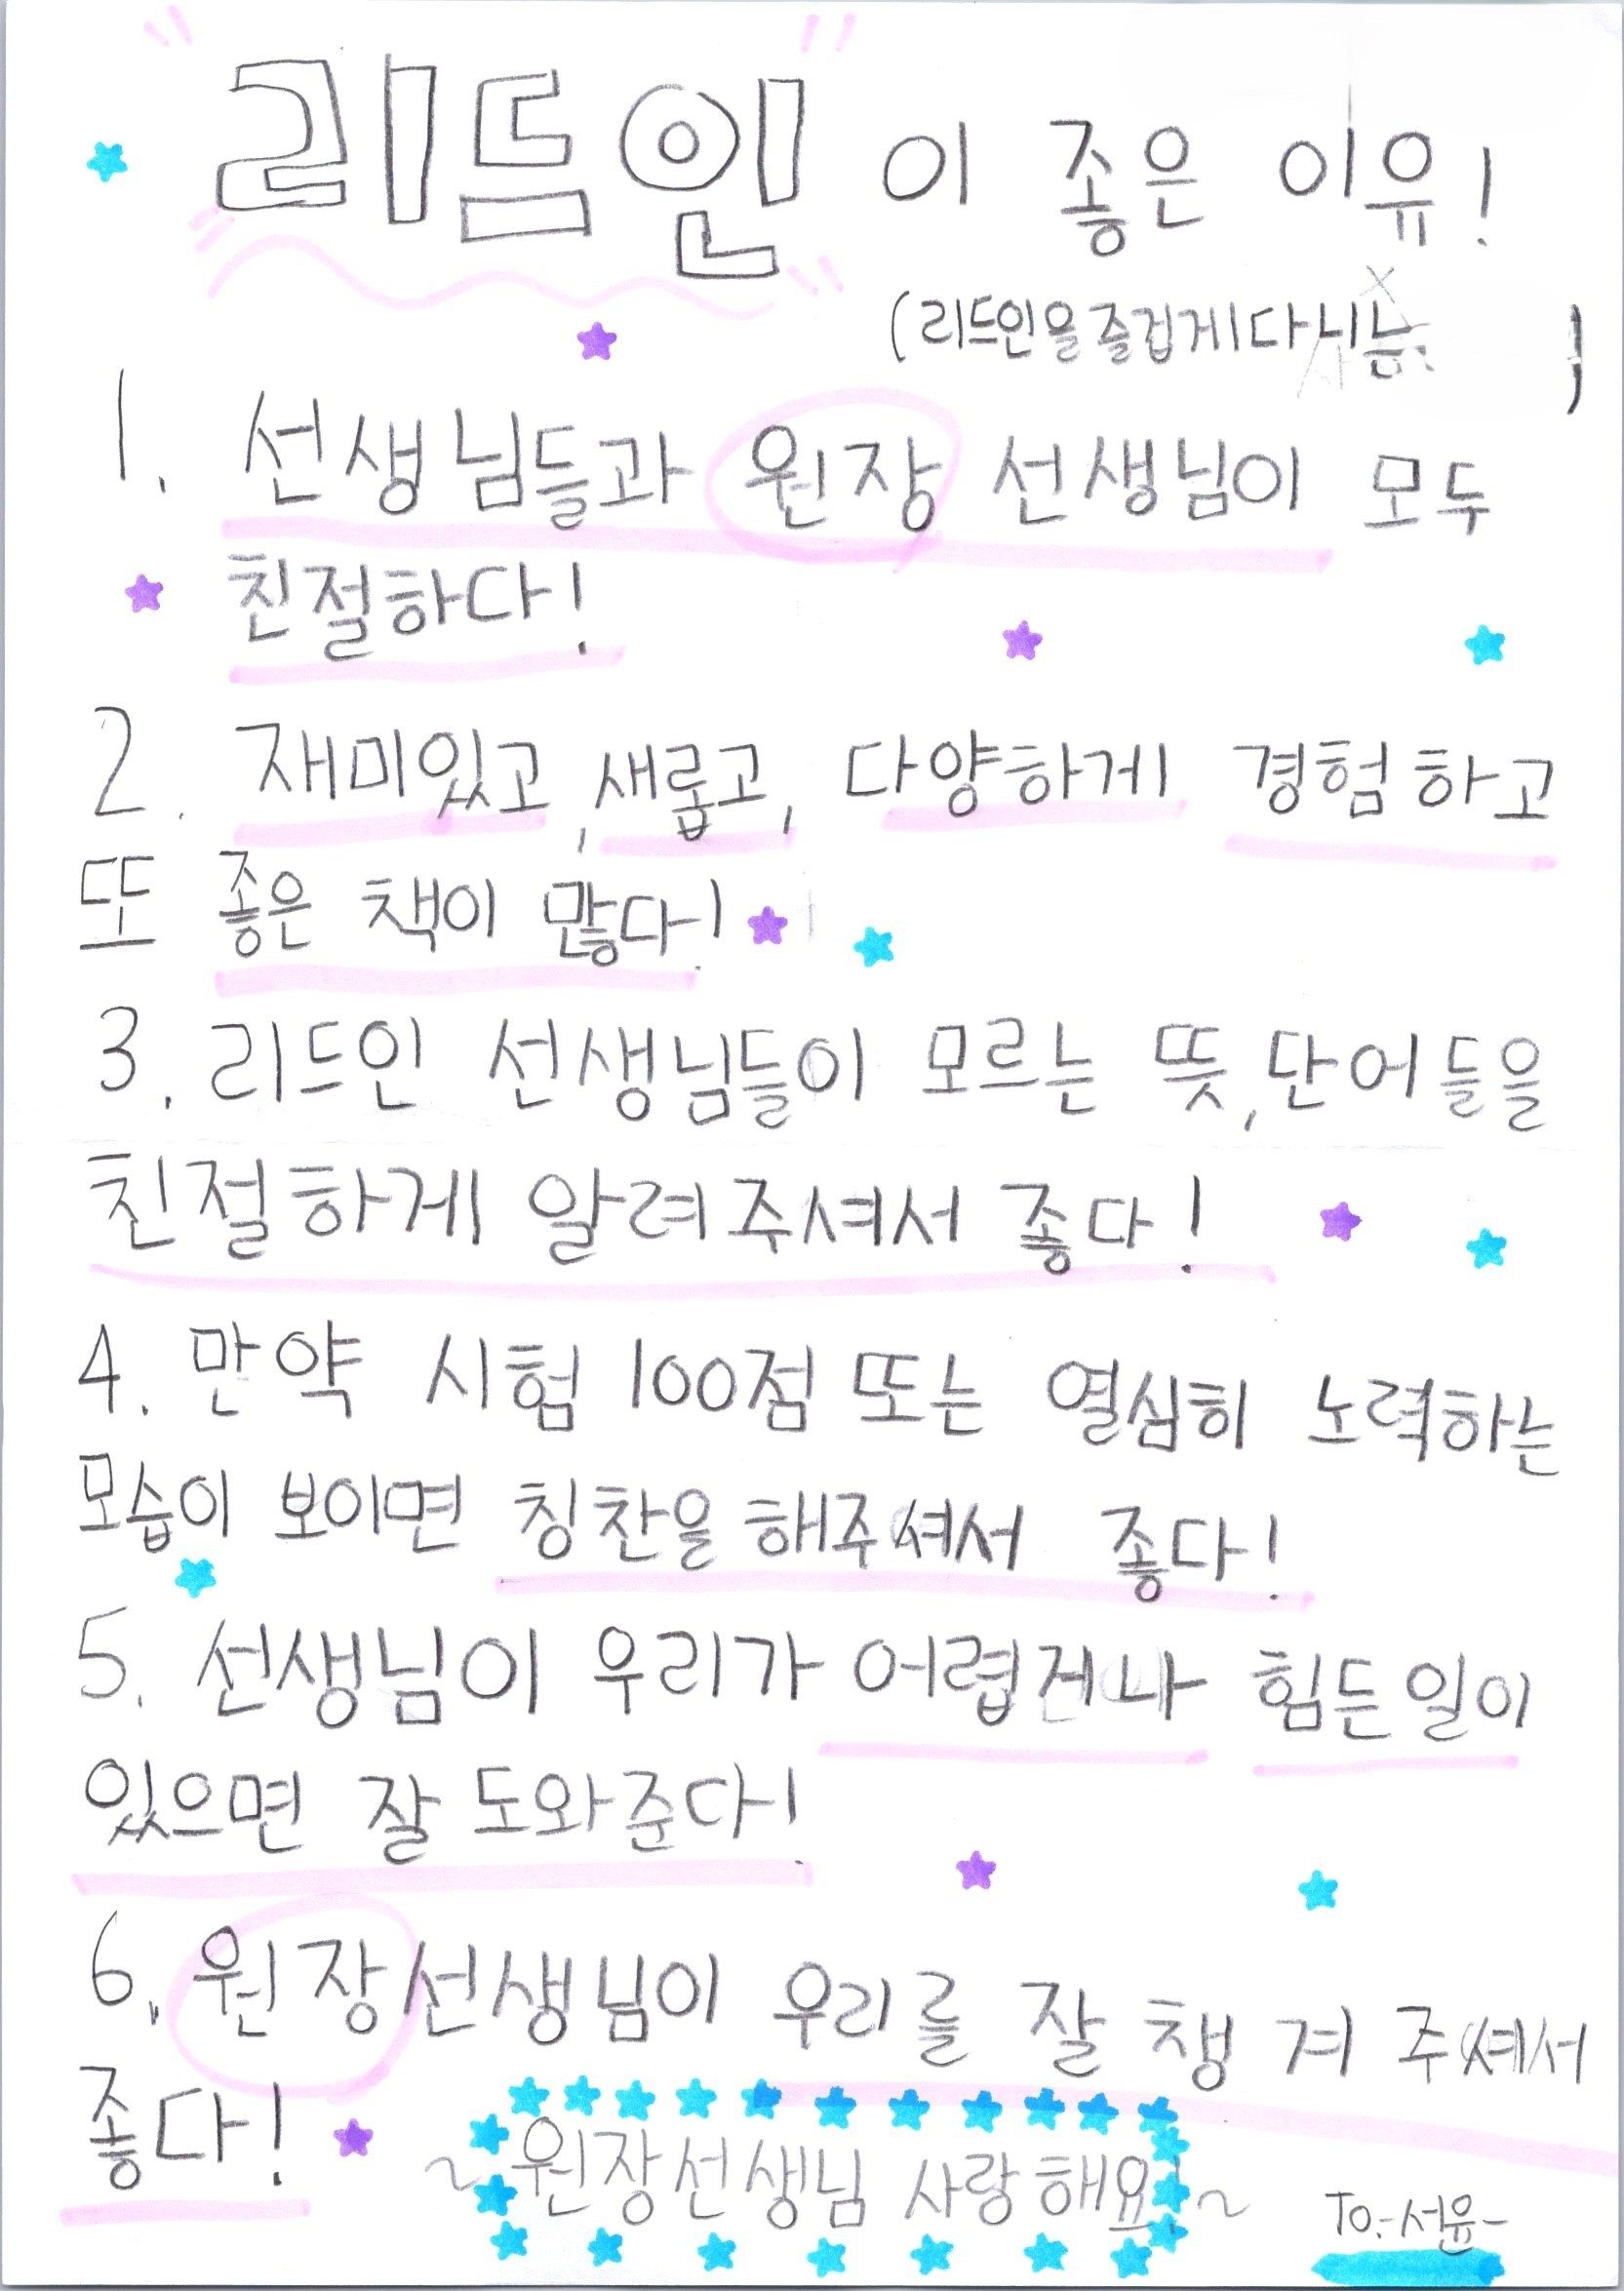 "리드인"이 좋은 이유!
(리드인을 즐겁게 다니는 )
1. 선생님들과 원장 선생님이 모두
친절하다!
2. 재미있고, 새롭고, 다양하게 경험하고
또 좋은 책이 많다!
3. 리드인 선생님들이 모르는 뜻, 단어들을
친절하게 알려주셔서 좋다!
4. 만약 시험 100점 또는 열심히 노력하는
모습이 보이면 칭찬을 해주셔서 좋다!
5. 선생님이 우리가 어렵건나 힘든일이
있으면 잘 도와준다!
6. 원장선생님이 우리를 잘 챙겨 주셔서
좋다!
~원장선생님 사랑해요!~
To.-서윤-